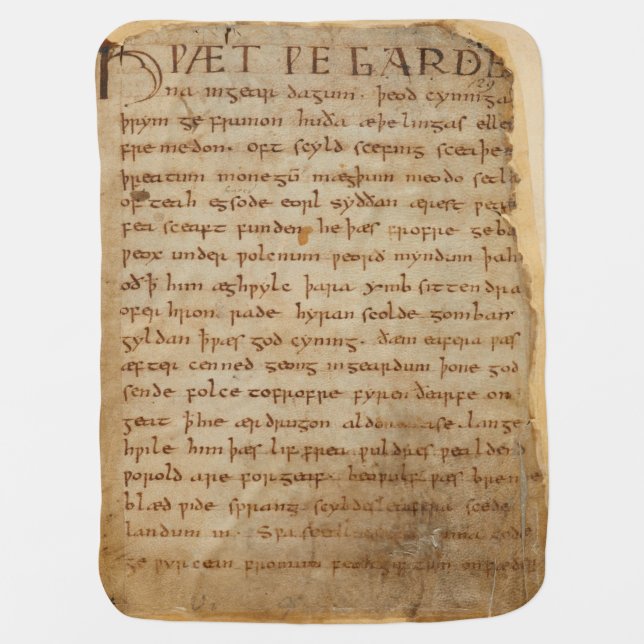 HǷÆT ǷE GARDE
129
na ingear dagum. þeod cyninga
þrym ge frunon huða æþelingas elle
fremedon. oft scyld scefing sceaþe
þreatum monegū mægþum meodo setla
of teah egsode eorl syððan ærest ƿear
fea sceaft funden he þæs frofre geba
ƿeox under ƿolcnum ƿeorð myndum þah
oð ꝥ him æghƿylc þara ymb sittendra
ofer hron rade hyran scolde gomban
gyldan ꝥ ƿæs god cyning. ðæm eafera ƿæs
æfter cenned geong ingeardum þone god
sende folce tofrofre fyren ðearfe on
geat ꝥ hie ær drugon aldor ase. lange
hƿile him þæs lif frea ƿuldres ƿealdend
ƿorold are forgeaf. beoƿulf ƿæs breme
blæd ƿide sprang scyldes eafera scede
landum in. Sƿa sceal guma gode
ge ƿyrcean fromum feoh giftum on fæder